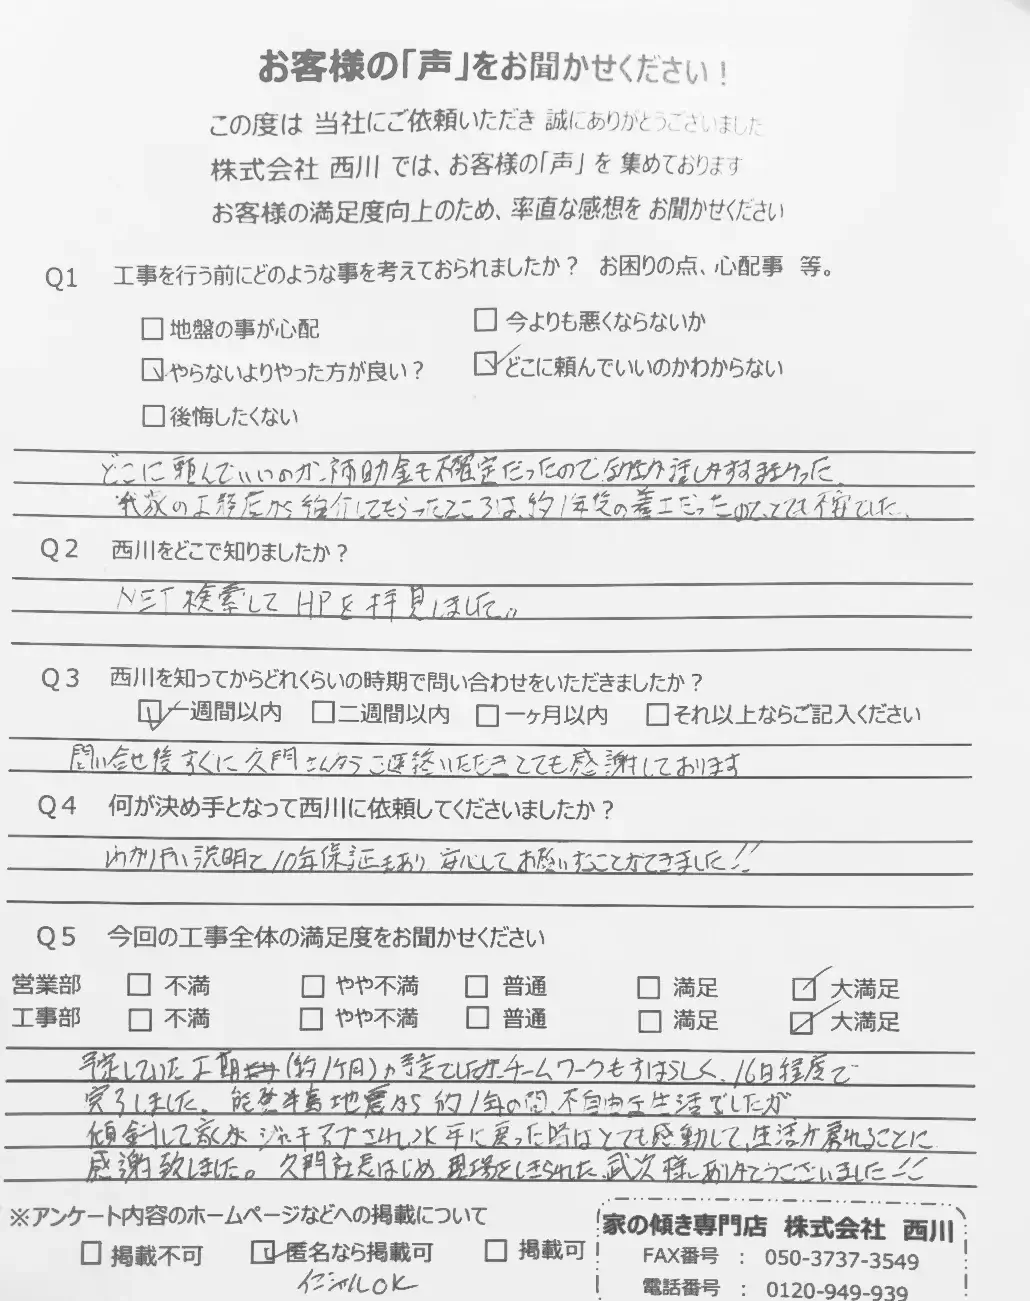 お客様の「声」をお聞かせください!
この度は 当社にご依頼いただき 誠にありがとうございました
株式会社 西川 では、お客様の「声」を 集めております
お客様の満足度向上のため、率直な感想を お聞かせください
Q1 工事を行う前にどのような事を考えておられましたか? お困りの点、心配事 等。
□ 地盤の事が心配 □ 今よりも悪くならないか
☑ やらないよりやった方が良い? ☑ どこに頼んでいいのかわからない
□ 後悔したくない
どこに頼んでいいのか、補助金も不確定だったので なかなか話しがすすまなかった、
我家の工務店から紹介してもらったところは、約1年後の着工だったので、とても不安でした、
Q2 西川をどこで知りましたか?
NET検索して HPを拝見しました。
Q3 西川を知ってからどれくらいの時期で問い合わせをいただきましたか?
☑ 一週間以内 □ 二週間以内 □ 一ヶ月以内 □ それ以上ならご記入ください
問い合せ後すぐに久門さんからご連絡いただきとても感謝しております
Q4 何が決め手となって西川に依頼してくださいましたか?
わかりやすい説明と10年保証もあり 安心してお願いすることができました!!
Q5 今回の工事全体の満足度をお聞かせください
営業部 □ 不満 □ やや不満 □ 普通 □ 満足 ☑ 大満足
工事部 □ 不満 □ やや不満 □ 普通 □ 満足 ☑ 大満足
予定していた工期(約1ヶ月)の予定でしたが チームワークもすばらしく、16日程度で
完了しました。能登半島地震から約1年の間、不自由な生活でしたが
傾斜して家が ジャッキアップされ、水平に戻った時はとても感動して、生活が戻れることに
感謝致しました。久門社長はじめ、現場をしきられた、武次様、ありがとうございました!!
※アンケート内容のホームページなどへの掲載について
□ 掲載不可 ☑ 匿名なら掲載可 □ 掲載可
イニシャルOK
家の傾き専門店 株式会社 西川
FAX番号 : 050-3737-3549
電話番号 : 0120-949-939